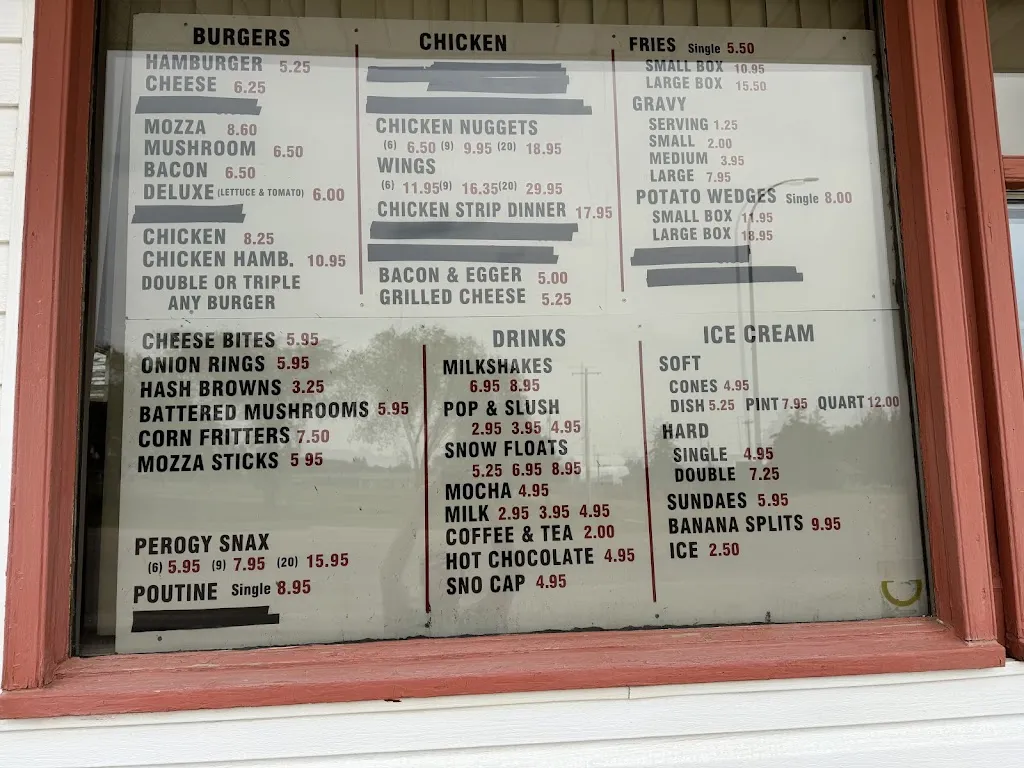 BURGERS
HAMBURGER 5.25
CHEESE 6.25
MOZZA 8.60
MUSHROOM 6.50
BACON 6.50
DELUXE (LETTUCE & TOMATO) 6.00
CHICKEN 8.25
CHICKEN HAMB. 10.95
DOUBLE OR TRIPLE
ANY BURGER
CHICKEN
CHICKEN NUGGETS
(6) 6.50 (9) 9.95 (20) 18.95
WINGS
(6) 11.95 (9) 16.35 (20) 29.95
CHICKEN STRIP DINNER 17.95
BACON & EGGER 5.00
GRILLED CHEESE 5.25
FRIES Single 5.50
SMALL BOX 10.95
LARGE BOX 15.50
GRAVY
SERVING 1.25
SMALL 2.00
MEDIUM 3.95
LARGE 7.95
POTATO WEDGES Single 8.00
SMALL BOX 11.95
LARGE BOX 18.95
CHEESE BITES 5.95
ONION RINGS 5.95
HASH BROWNS 3.25
BATTERED MUSHROOMS 5.95
CORN FRITTERS 7.50
MOZZA STICKS 5 95
PEROGY SNAX
(6) 5.95 (9) 7.95 (20) 15.95
POUTINE Single 8.95
DRINKS
MILKSHAKES
6.95 8.95
POP & SLUSH
2.95 3.95 4.95
SNOW FLOATS
5.25 6.95 8.95
MOCHA 4.95
MILK 2.95 3.95 4.95
COFFEE & TEA 2.00
HOT CHOCOLATE 4.95
SNO CAP 4.95
ICE CREAM
SOFT
CONES 4.95
DISH 5.25 PINT 7.95 QUART 12.00
HARD
SINGLE 4.95
DOUBLE 7.25
SUNDAES 5.95
BANANA SPLITS 9.95
ICE 2.50